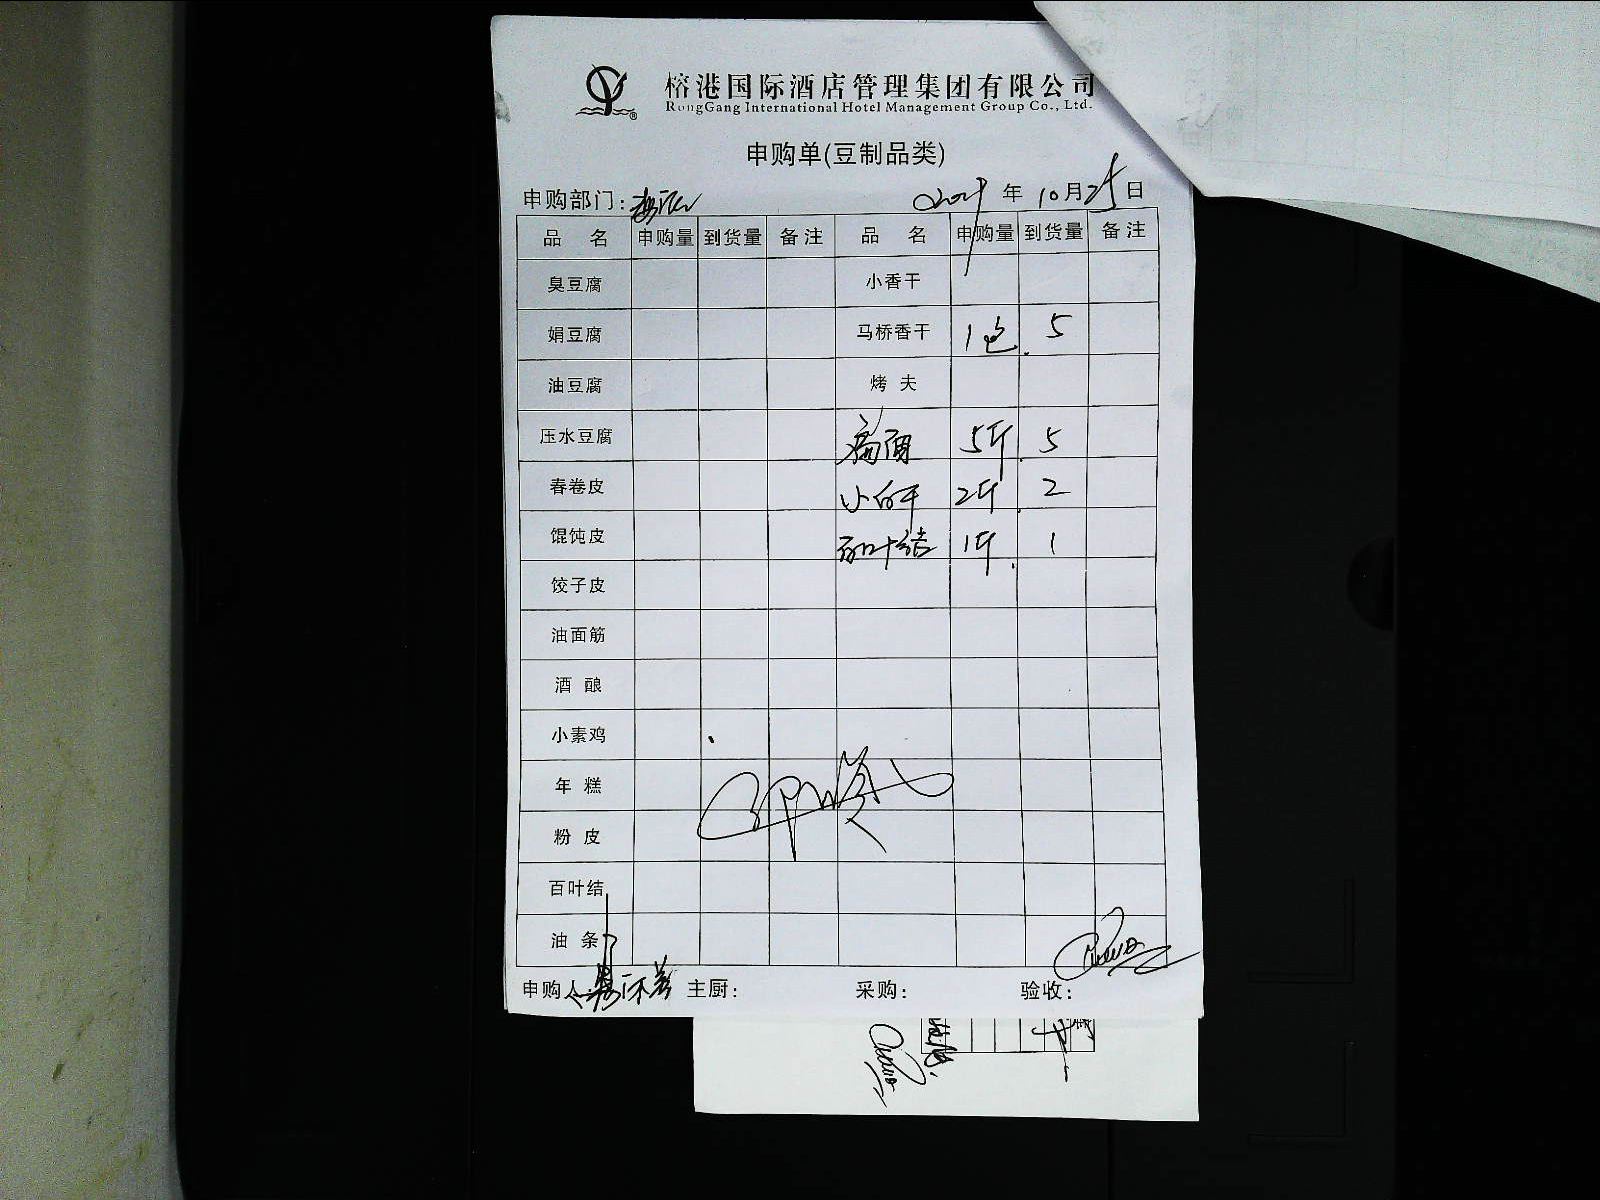 榕港国际酒店管理集团有限公司
RongGang International Hotel Management Group Co., Ltd.
申购单(豆制品类)
申购部门: 2021 年 10 月 25 日
品 名 申购量 到货量 备注 品 名 申购量 到货量 备注
臭豆腐 小香干
娟豆腐 马桥香干 1包 5
油豆腐 烤 夫
压水豆腐 5斤 5
春卷皮 小白干 2斤 2
馄饨皮 百叶结 1斤 1
饺子皮
油面筋
酒 酿
小素鸡
年 糕
粉 皮
百叶结
油 条
申购人: 主厨: 采购: 验收: